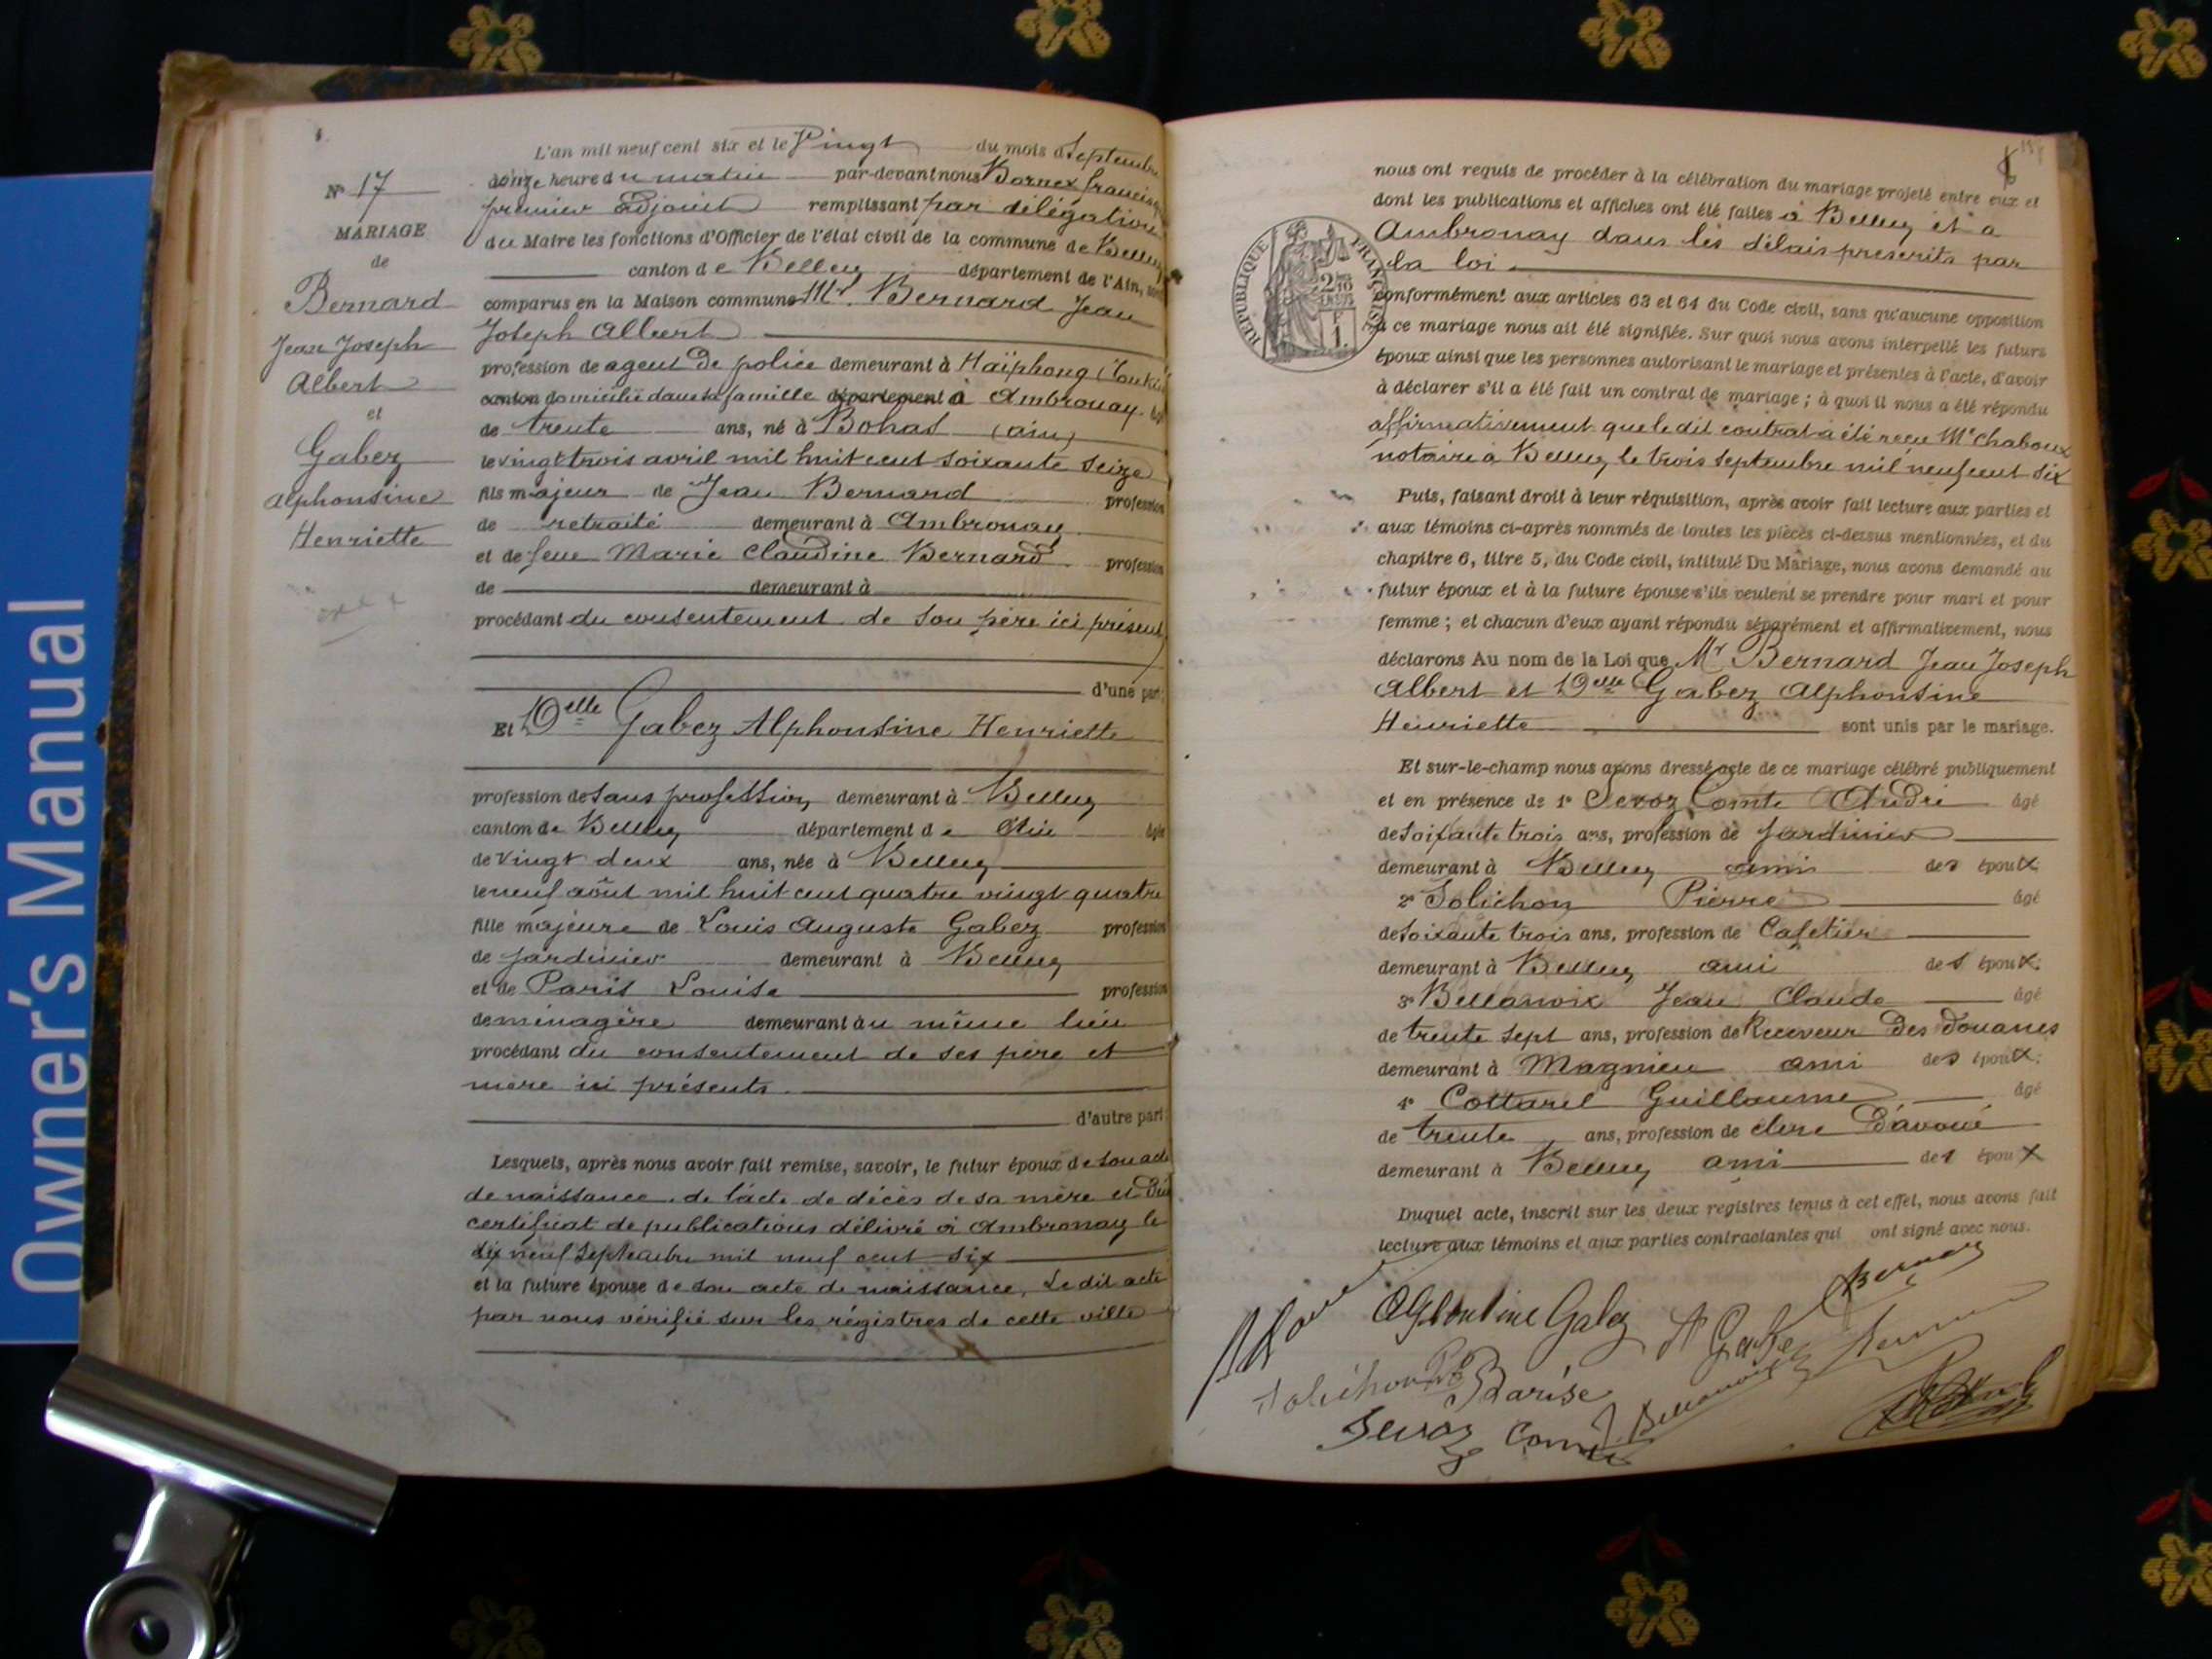 Owner's Manual
N° 17
MARIAGE
de
Bernard
Jean Joseph
Albert
et
Gabez
Alphonsine
Henriette
L'an mil neuf cent six et le Vingt du mois d Septembre
onze heure du matin par-devant nous Bornex francisque
premier adjoint remplissant par délégation
du Maire les fonctions d'Officier de l'état civil de la commune de Belley
canton de Belley département de l'Ain, sont
comparus en la Maison commune Mr. Bernard Jean
Joseph Albert
profession de agent de police demeurant à Haïphong (Tonkin
canton domicilié dans sa famille département à Ambronay. âgé
de trente ans, né à Bohas (ain)
le vingt trois avril mil huit cent soixante seize
fils majeur de Jean Bernard profession
de retraité demeurant à Ambronay
et de feue Marie Claudine Bernard profession
de demeurant à
procédant du consentement de son père ici présent
d'une part;
Et Delle Gabez Alphonsine Henriette
profession de sans profession demeurant à Belley
canton de Belley département de Ain âgée
de vingt deux ans, née à Belley
le neuf août mil huit cent quatre vingt quatre
fille majeure de Louis Auguste Gabez profession
de jardinier demeurant à Belley
et de Paris Louise profession
de ménagère demeurant au même lieu
procédant du consentement de ses père et
mère ici présents
d'autre part:
Lesquels, après nous avoir fait remise, savoir, le futur époux de son acte
de naissance, de l'acte de décès de sa mère et du
certificat de publications délivré à Ambronay le
dix neuf Septembre mil neuf cent six
et la future épouse de son acte de naissance, Le dit acte
par nous vérifié sur les régistres de cette ville
nous ont requis de procéder à la célébration du mariage projeté entre eux et
dont les publications et affiches ont été faites à Belley et à
Ambronay dans les délais prescrits par
la loi
REPUBLIQUE FRANÇAISE
conformément aux articles 63 et 64 du Code civil, sans qu'aucune opposition
à ce mariage nous ait été signifiée. Sur quoi nous avons interpellé les futurs
époux ainsi que les personnes autorisant le mariage et présentes à l'acte, d'avoir
à déclarer s'il a été fait un contrat de mariage; à quoi il nous a été répondu
affirmativement que le dit contrat a été reçu Me Chaboux
notaire à Belley le trois septembre mil neuf cent six
Puis, faisant droit à leur réquisition, après avoir fait lecture aux parties et
aux témoins ci-après nommés de toutes les pièces ci-dessus mentionnées, et du
chapitre 6, titre 5, du Code civil, intitulé Du Mariage, nous avons demandé au
futur époux et à la future épouse s'ils veulent se prendre pour mari et pour
femme; et chacun d'eux ayant répondu séparément et affirmativement, nous
déclarons Au nom de la Loi que Mr Bernard Jean Joseph
Albert et Delle Gabez Alphonsine
Henriette sont unis par le mariage.
Et sur-le-champ nous avons dressé acte de ce mariage célébré publiquement
et en présence de 1° Sevoz Comte André âgé
de soixante trois ans, profession de jardinier
demeurant à Belley ami des époux
2° Solichon Pierre âgé
de soixante trois ans, profession de Cafetier
demeurant à Belley ami des époux;
3° Bellanoix Jean Claude âgé
de trente sept ans, profession de Receveur des Douanes
demeurant à Magnieu ami des époux;
4° Cottarel Guillaume âgé
de trente ans, profession de clerc d'avoué
demeurant à Belley ami des époux
Duquel acte, inscrit sur les deux registres tenus à cet effet, nous avons fait
lecture aux témoins et aux parties contractantes qui ont signé avec nous.
Alphonsine Gabez A Gabez Bernard
Solichon Pre Parise
Sevoz Comte J. Bellanoix